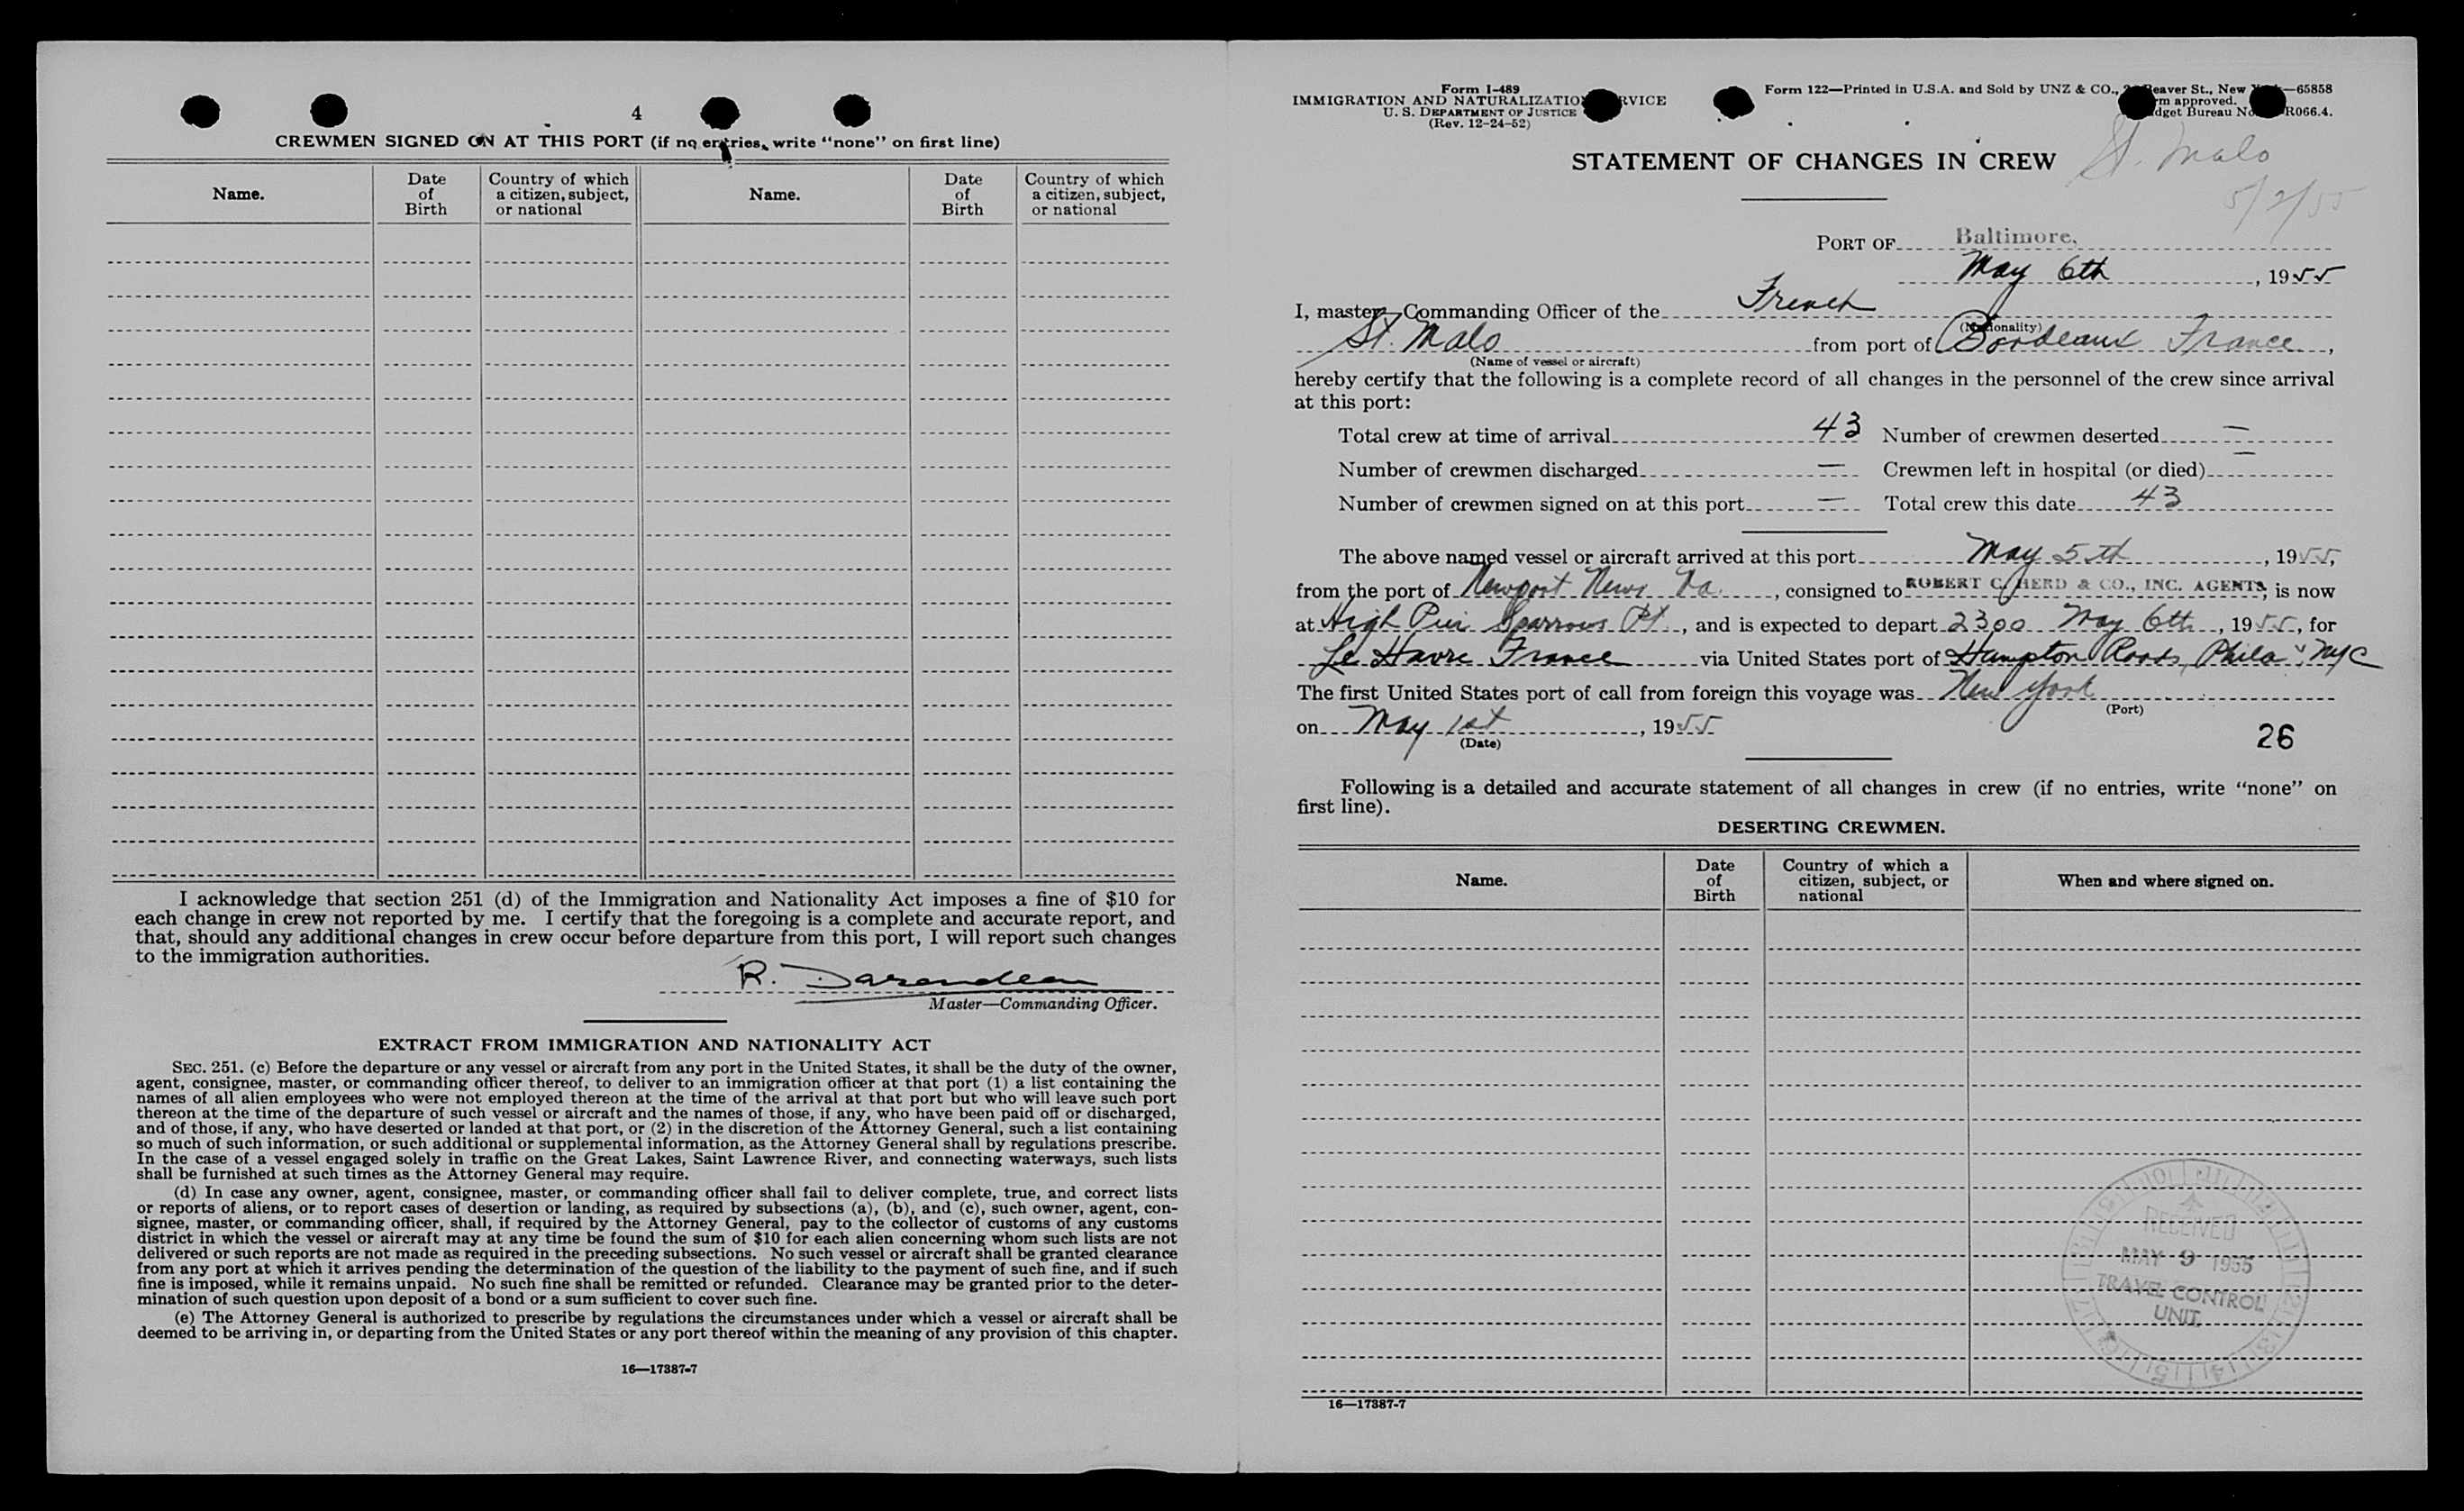 4
CREWMEN SIGNED ON AT THIS PORT (if no entries, write “none” on first line)
Name. Date of Birth Country of which a citizen, subject, or national Name. Date of Birth Country of which a citizen, subject, or national
I acknowledge that section 251 (d) of the Immigration and Nationality Act imposes a fine of $10 for
each change in crew not reported by me. I certify that the foregoing is a complete and accurate report, and
that, should any additional changes in crew occur before departure from this port, I will report such changes
to the immigration authorities.
R.
Master—Commanding Officer.
EXTRACT FROM IMMIGRATION AND NATIONALITY ACT
SEC. 251. (c) Before the departure or any vessel or aircraft from any port in the United States, it shall be the duty of the owner,
agent, consignee, master, or commanding officer thereof, to deliver to an immigration officer at that port (1) a list containing the
names of all alien employees who were not employed thereon at the time of the arrival at that port but who will leave such port
thereon at the time of the departure of such vessel or aircraft and the names of those, if any, who have been paid off or discharged,
and of those, if any, who have deserted or landed at that port, or (2) in the discretion of the Attorney General, such a list containing
so much of such information, or such additional or supplemental information, as the Attorney General shall by regulations prescribe.
In the case of a vessel engaged solely in traffic on the Great Lakes, Saint Lawrence River, and connecting waterways, such lists
shall be furnished at such times as the Attorney General may require.
(d) In case any owner, agent, consignee, master, or commanding officer shall fail to deliver complete, true, and correct lists
or reports of aliens, or to report cases of desertion or landing, as required by subsections (a), (b), and (c), such owner, agent, con-
signee, master, or commanding officer, shall, if required by the Attorney General, pay to the collector of customs of any customs
district in which the vessel or aircraft may at any time be found the sum of $10 for each alien concerning whom such lists are not
delivered or such reports are not made as required in the preceding subsections. No such vessel or aircraft shall be granted clearance
from any port at which it arrives pending the determination of the question of the liability to the payment of such fine, and if such
fine is imposed, while it remains unpaid. No such fine shall be remitted or refunded. Clearance may be granted prior to the deter-
mination of such question upon deposit of a bond or a sum sufficient to cover such fine.
(e) The Attorney General is authorized to prescribe by regulations the circumstances under which a vessel or aircraft shall be
deemed to be arriving in, or departing from the United States or any port thereof within the meaning of any provision of this chapter.
16—17387-7
Form I-489
IMMIGRATION AND NATURALIZATION SERVICE
U. S. DEPARTMENT OF JUSTICE
(Rev. 12-24-52)
Form 122—Printed in U.S.A. and Sold by UNZ & CO., Beaver St., New York—65858
Form approved.
Budget Bureau No. R066.4.
STATEMENT OF CHANGES IN CREW
St. Malo
5/2/55
PORT OF Baltimore,
May 6th, 1955
I, master, Commanding Officer of the French
(Nationality)
St. Malo from port of Bordeaux France,
(Name of vessel or aircraft)
hereby certify that the following is a complete record of all changes in the personnel of the crew since arrival
at this port:
Total crew at time of arrival 43 Number of crewmen deserted —
Number of crewmen discharged — Crewmen left in hospital (or died) —
Number of crewmen signed on at this port — Total crew this date 43
The above named vessel or aircraft arrived at this port May 5th, 1955,
from the port of Newport News Va., consigned to ROBERT C. HERD & CO., INC. AGENTS, is now
at High Pier Sparrows Pt., and is expected to depart 2300 May 6th, 1955, for
Le Havre France via United States port of Hampton Roads, Phila NYC
The first United States port of call from foreign this voyage was New York
(Port)
on May 1st, 1955
(Date)
26
Following is a detailed and accurate statement of all changes in crew (if no entries, write “none” on
first line).
DESERTING CREWMEN.
Name. Date of Birth Country of which a citizen, subject, or national When and where signed on.
RECEIVED
MAY 9 1955
TRAVEL CONTROL
UNIT.
16—17387-7